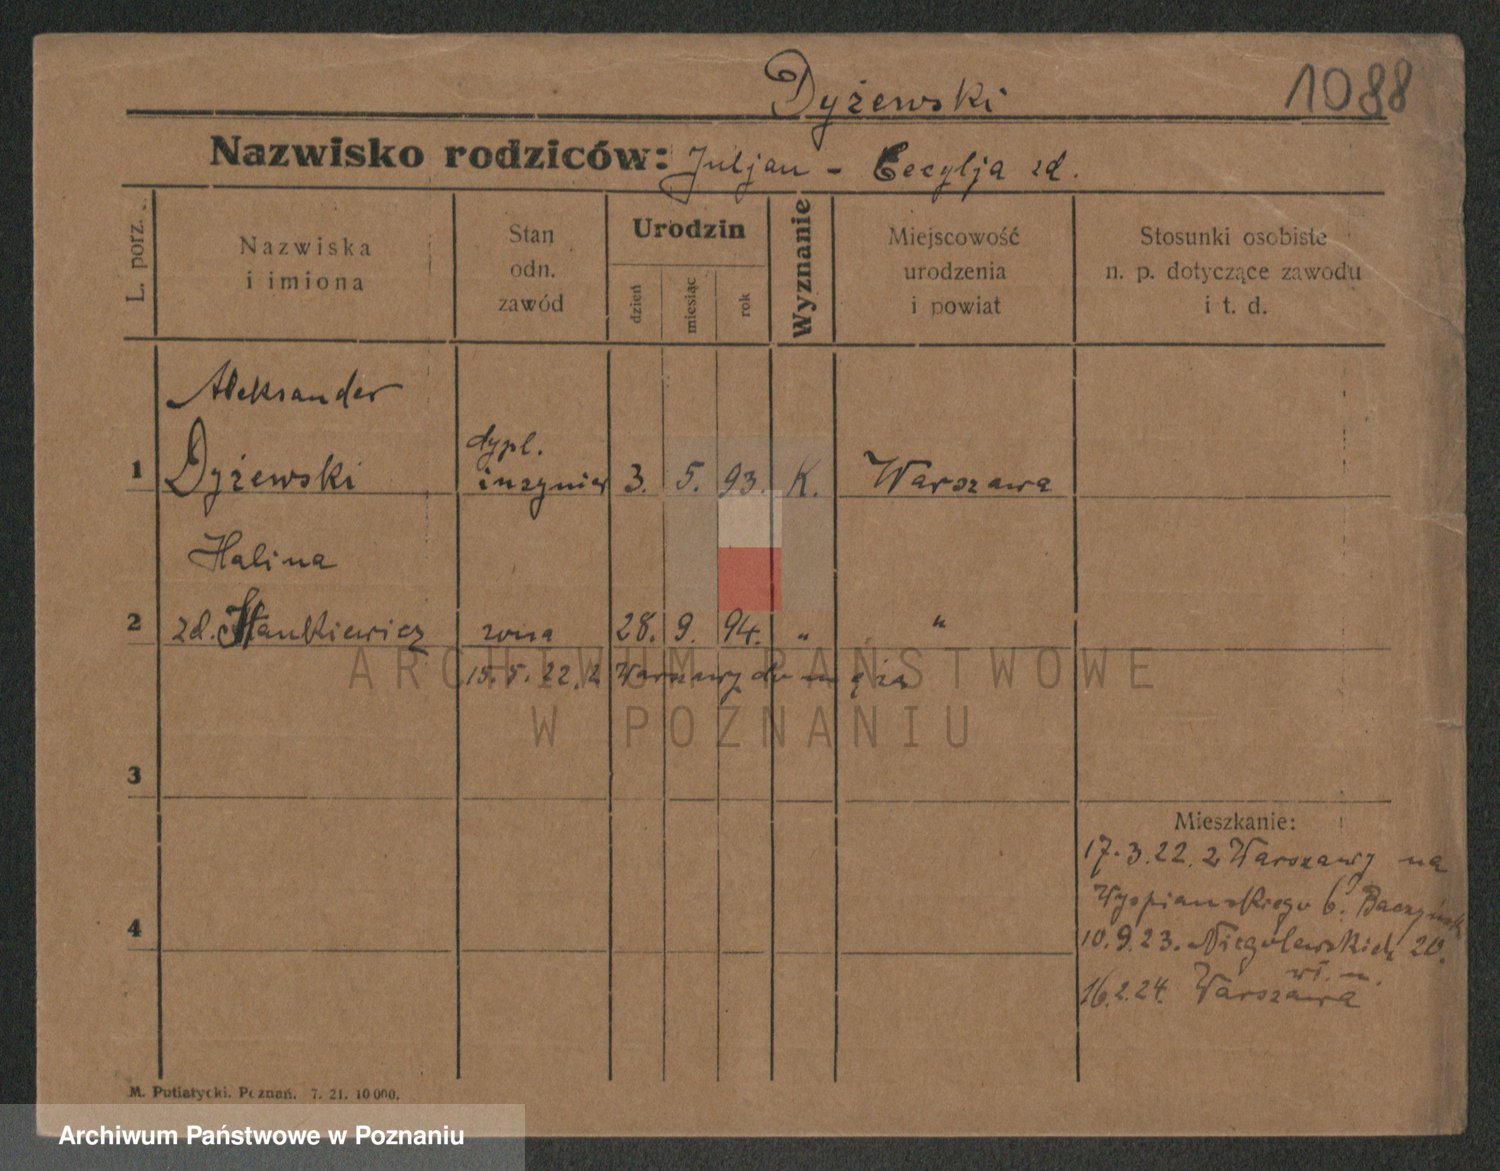 Dyżewski 1088
Nazwisko rodziców: Juljan - Cecylja zd.
L. porz.
Nazwiska
i imiona
Stan
odn.
zawód
Urodzin
dzień
miesiąc
rok
Wyznanie
Miejscowość
urodzenia
i powiat
Stosunki osobiste
n. p. dotyczące zawodu
i t. d.
Aleksander
1 Dyżewski dypl. inzynier 3. 5. 93. K. Warszawa
Halina
2 zd. Hankiewicz zona 28. 9. 94. " "
15.5.22. z Warszawy do męża
ARCHIWUM PAŃSTWOWE
W POZNANIU
3
Mieszkanie:
17.3.22. z Warszawy na
Wyspianskiego 6.
4
10.9.23. Niegolewskich 20.
wł. m.
16.2.24. Warszawa
M. Putiatycki. Poznań. 7. 21. 10 000.
Archiwum Państwowe w Poznaniu